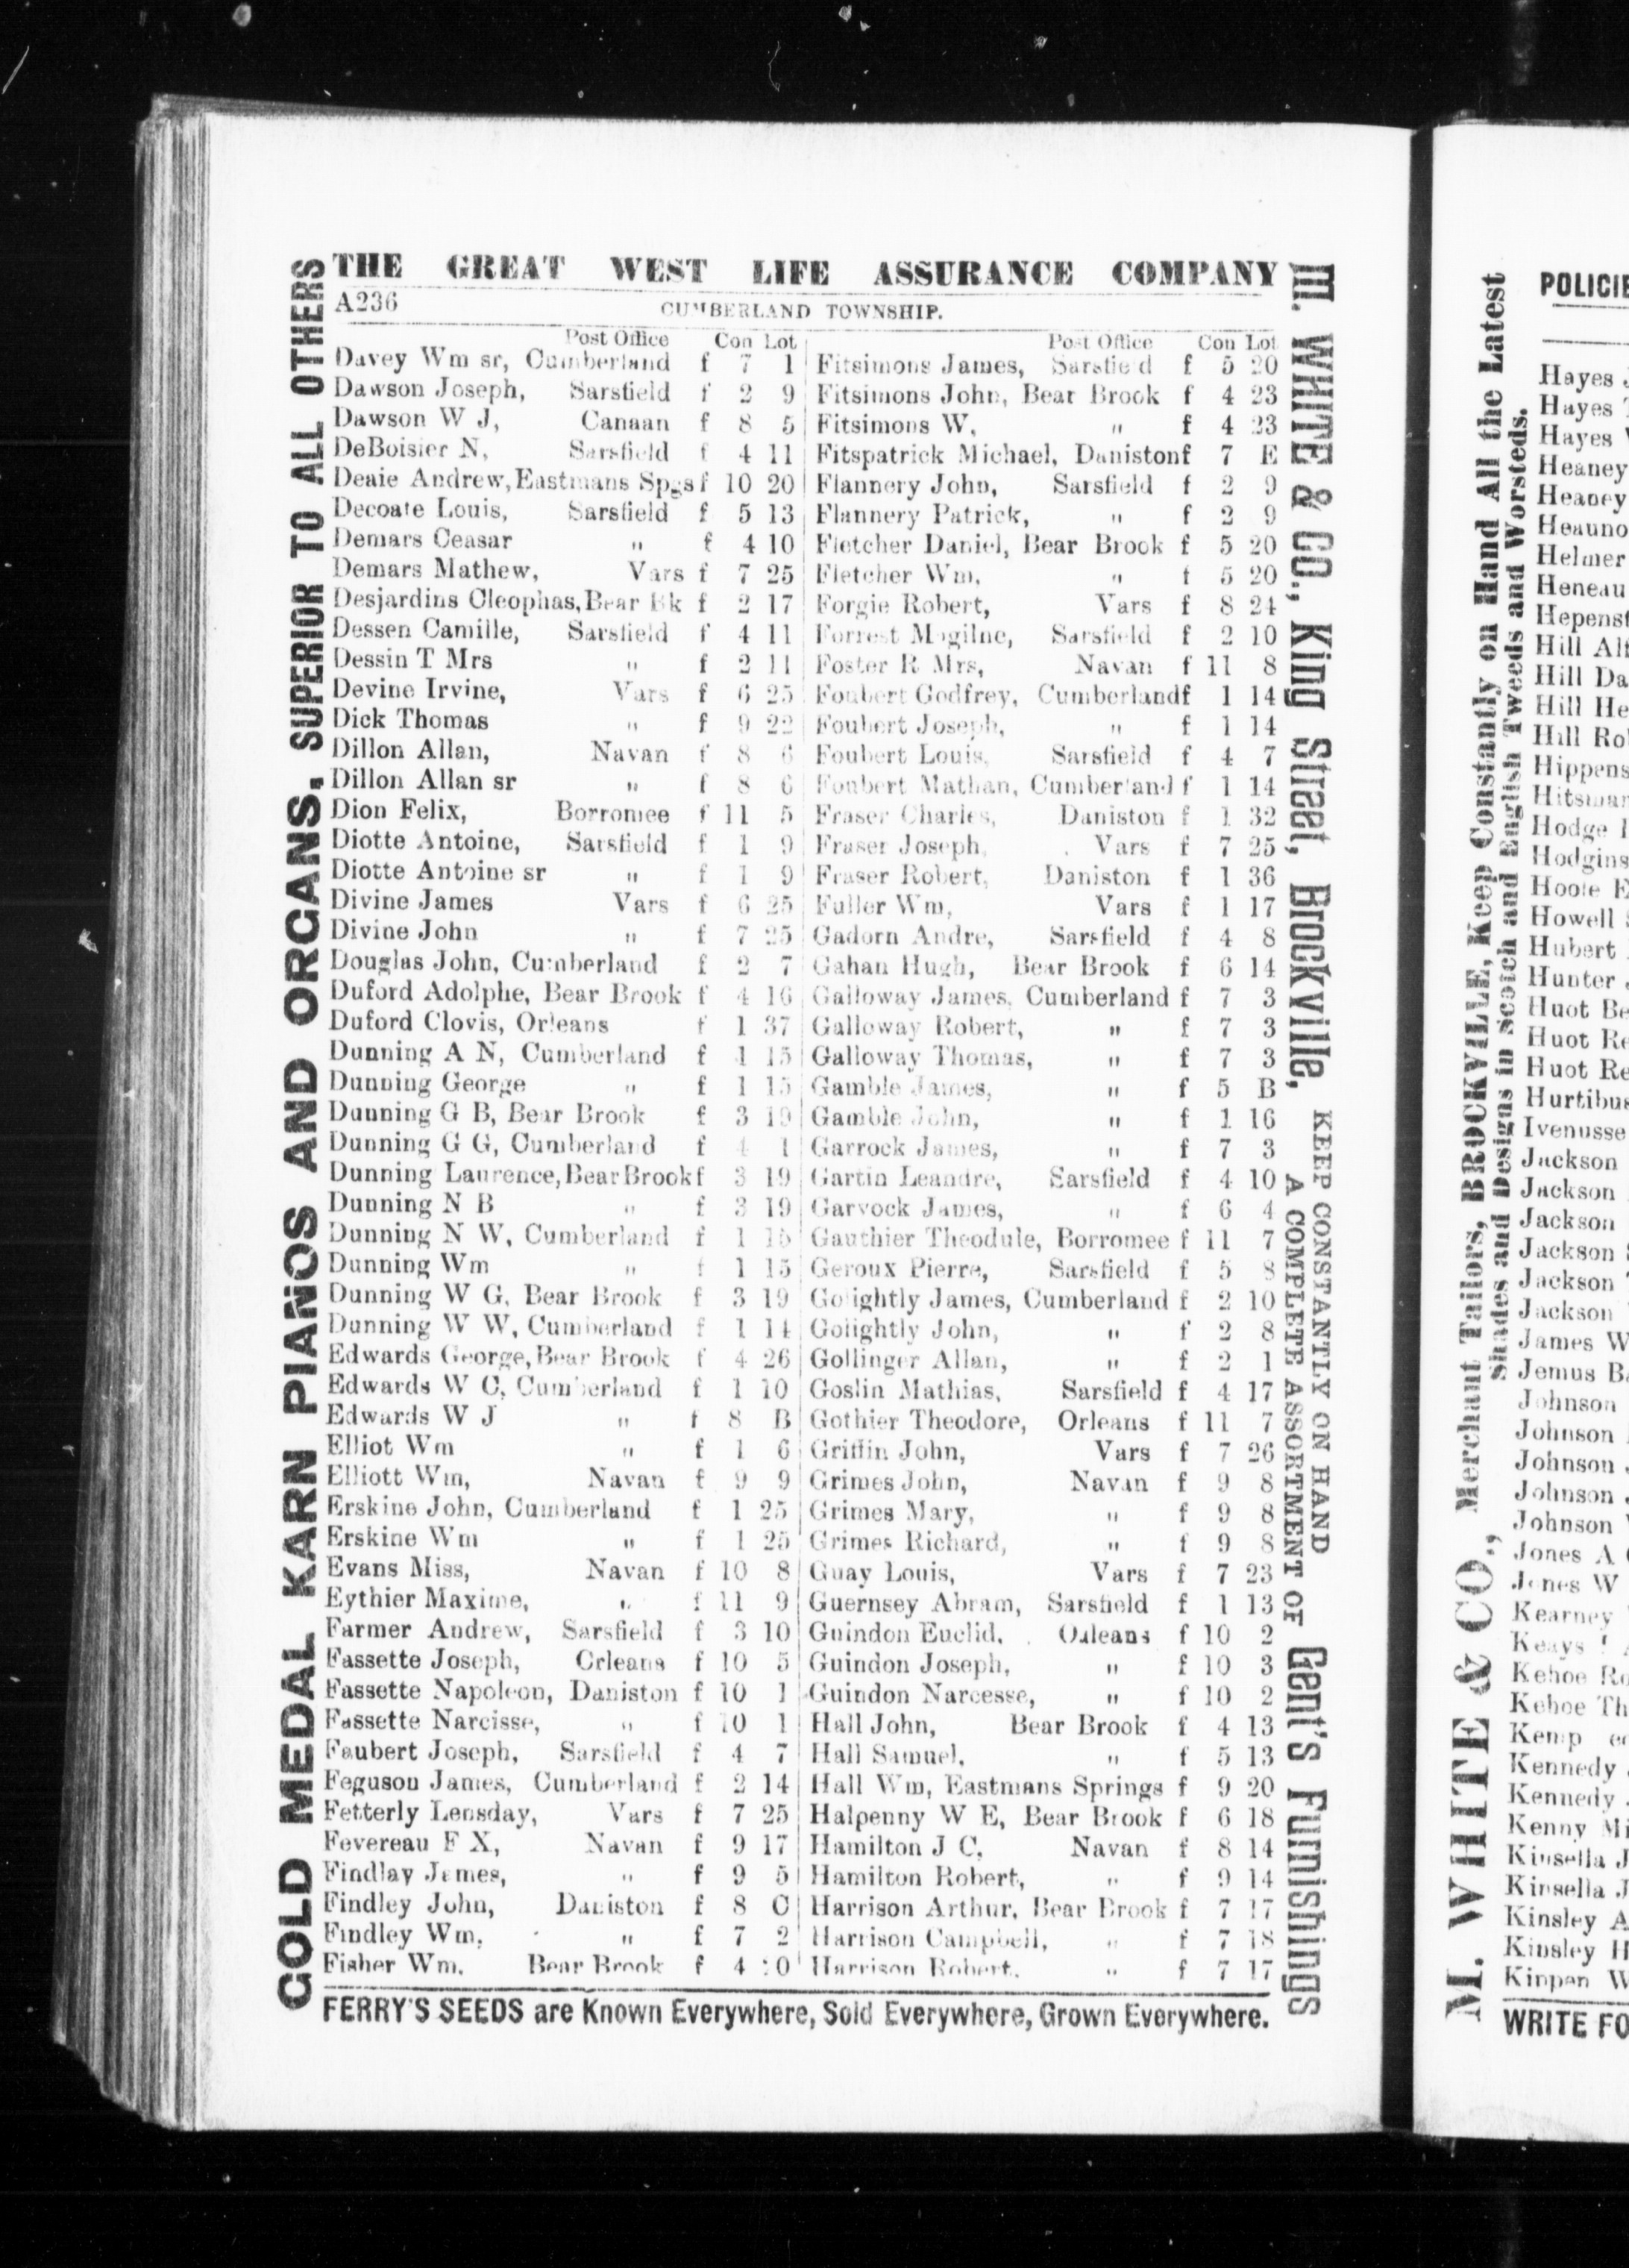 THE GREAT WEST LIFE ASSURANCE COMPANY
A236 CUMBERLAND TOWNSHIP.
Post Office Con Lot
Davey Wm sr, Cumberland f 7 1
Dawson Joseph, Sarsfield f 2 9
Dawson W J, Canaan f 8 5
DeBoisier N, Sarsfield f 4 11
Deaie Andrew, Eastmans Spgs f 10 20
Decoate Louis, Sarsfield f 5 13
Demars Ceasar " f 4 10
Demars Mathew, Vars f 7 25
Desjardins Cleophas, Bear Bk f 2 17
Dessen Camille, Sarsfield f 4 11
Dessin T Mrs " f 2 11
Devine Irvine, Vars f 6 25
Dick Thomas " f 9 22
Dillon Allan, Navan f 8 6
Dillon Allan sr " f 8 6
Dion Felix, Borromee f 11 5
Diotte Antoine, Sarsfield f 1 9
Diotte Antoine sr " f 1 9
Divine James Vars f 6 25
Divine John " f 7 25
Douglas John, Cumberland f 2 7
Duford Adolphe, Bear Brook f 4 16
Duford Clovis, Orleans f 1 37
Dunning A N, Cumberland f 1 15
Dunning George " f 1 15
Dunning G B, Bear Brook f 3 19
Dunning G G, Cumberland f 4 1
Dunning Laurence, Bear Brook f 3 19
Dunning N B " f 3 19
Dunning N W, Cumberland f 1 15
Dunning Wm " f 1 15
Dunning W G, Bear Brook f 3 19
Dunning W W, Cumberland f 1 14
Edwards George, Bear Brook f 4 26
Edwards W C, Cumberland f 1 10
Edwards W J " f 8 B
Elliot Wm " f 1 6
Elliott Wm, Navan f 9 9
Erskine John, Cumberland f 1 25
Erskine Wm " f 1 25
Evans Miss, Navan f 10 8
Eythier Maxime, " f 11 9
Farmer Andrew, Sarsfield f 3 10
Fassette Joseph, Orleans f 10 5
Fassette Napoleon, Daniston f 10 1
Fassette Narcisse, " f 10 1
Faubert Joseph, Sarsfield f 4 7
Feguson James, Cumberland f 2 14
Fetterly Lensday, Vars f 7 25
Fevereau F X, Navan f 9 17
Findlay James, " f 9 5
Findley John, Daniston f 8 C
Findley Wm, " f 7 2
Fisher Wm, Bear Brook f 4
Post Office Con Lot
Fitsimons James, Sarsfield f 5 20
Fitsimons John, Bear Brook f 4 23
Fitsimons W, " f 4 23
Fitspatrick Michael, Daniston f 7 E
Flannery John, Sarsfield f 2 9
Flannery Patrick, " f 2 9
Fletcher Daniel, Bear Brook f 5 20
Fletcher Wm, " f 5 20
Forgie Robert, Vars f 8 24
Forrest Mogilne, Sarsfield f 2 10
Foster R Mrs, Navan f 11 8
Foubert Godfrey, Cumberland f 1 14
Foubert Joseph, " f 1 14
Foubert Louis, Sarsfield f 4 7
Foubert Mathan, Cumberland f 1 14
Fraser Charles, Daniston f 1 32
Fraser Joseph, Vars f 7 25
Fraser Robert, Daniston f 1 36
Fuller Wm, Vars f 1 17
Gadorn Andre, Sarsfield f 4 8
Gahan Hugh, Bear Brook f 6 14
Galloway James, Cumberland f 7 3
Galloway Robert, " f 7 3
Galloway Thomas, " f 7 3
Gamble James, " f 5 B
Gamble John, " f 1 16
Garrock James, " f 7 3
Gartin Leandre, Sarsfield f 4 10
Garvock James, " f 6 4
Gauthier Theodule, Borromee f 11 7
Geroux Pierre, Sarsfield f 5 8
Golightly James, Cumberland f 2 10
Golightly John, " f 2 8
Gollinger Allan, " f 2 1
Goslin Mathias, Sarsfield f 4 17
Gothier Theodore, Orleans f 11 7
Griffin John, Vars f 7 26
Grimes John, Navan f 9 8
Grimes Mary, " f 9 8
Grimes Richard, " f 9 8
Guay Louis, Vars f 7 23
Guernsey Abram, Sarsfield f 1 13
Guindon Euclid, Orleans f 10 2
Guindon Joseph, " f 10 3
Guindon Narcesse, " f 10 2
Hall John, Bear Brook f 4 13
Hall Samuel, " f 5 13
Hall Wm, Eastmans Springs f 9 20
Halpenny W E, Bear Brook f 6 18
Hamilton J C, Navan f 8 14
Hamilton Robert, " f 9 14
Harrison Arthur, Bear Brook f 7 17
Harrison Campbell, " f 7 18
Harrison Robert, " f 7 17
FERRY'S SEEDS are Known Everywhere, Sold Everywhere, Grown Everywhere.
GOLD MEDAL KARN PIANOS AND ORGANS, SUPERIOR TO ALL OTHERS
M. WHITE & CO., King Street, Brockville, KEEP CONSTANTLY ON HAND A COMPLETE ASSORTMENT OF Gent's Furnishings
M. WHITE & CO., Merchant Tailors, BROCKVILLE, Keep Constantly on Hand All the Latest
Shades and Designs in Scotch and English Tweeds and Worsteds.
POLICIE
Hayes
Hayes
Hayes
Heaney
Heaney
Heauno
Helmer
Heneau
Hepenst
Hill Alf
Hill Da
Hill He
Hill Ro
Hippens
Hitsman
Hodge
Hodgins
Hoole E
Howell
Hubert
Hunter
Huot Be
Huot Re
Huot Re
Hurtibus
Ivenusse
Jackson
Jackson
Jackson
Jackson
Jackson
Jackson
James W
Jemus
Johnson
Johnson
Johnson
Johnson
Johnson
Jones A
Jones W
Kearney
Keays
Kehoe Ro
Kehoe Th
Kemp
Kennedy
Kennedy
Kenny Mi
Kinsella J
Kinsella J
Kinsley A
Kinsley H
Kinpan W
WRITE FO